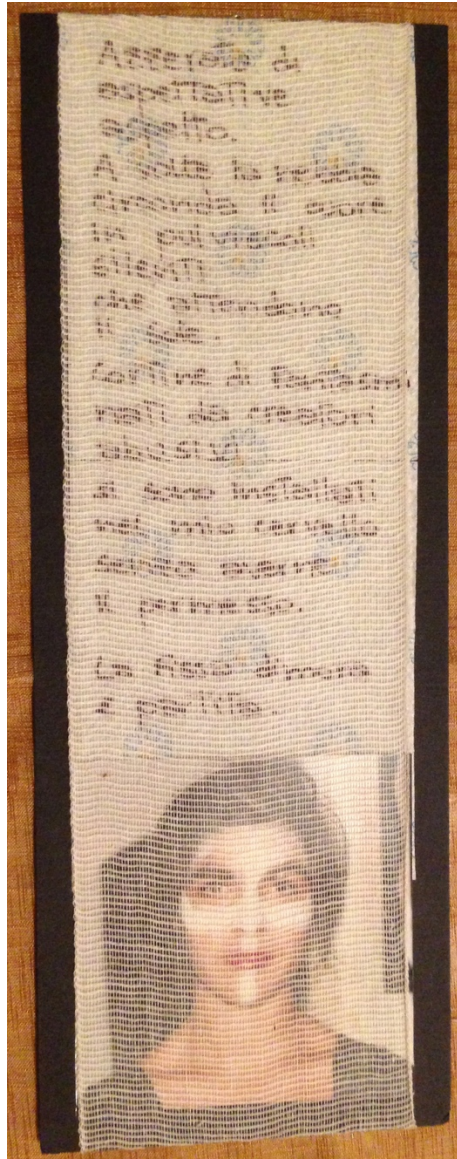 Assetata di
aspettative
aspetto.
A volte la nebbia
circonda il cuore
in pulviscoli
silenti
che attendono
il sole.
Cortine di fantasmi
nati da creatori
abusivi
si sono installati
nel mio cervello
senza averne
il permesso.
La fissa dimora
è partita.